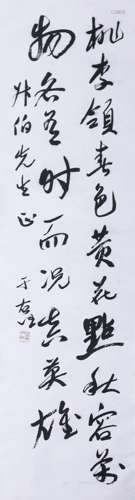 桃李领春色黄花點秋容萬
物各有时而况真英雄
叔伯先生正
于右任